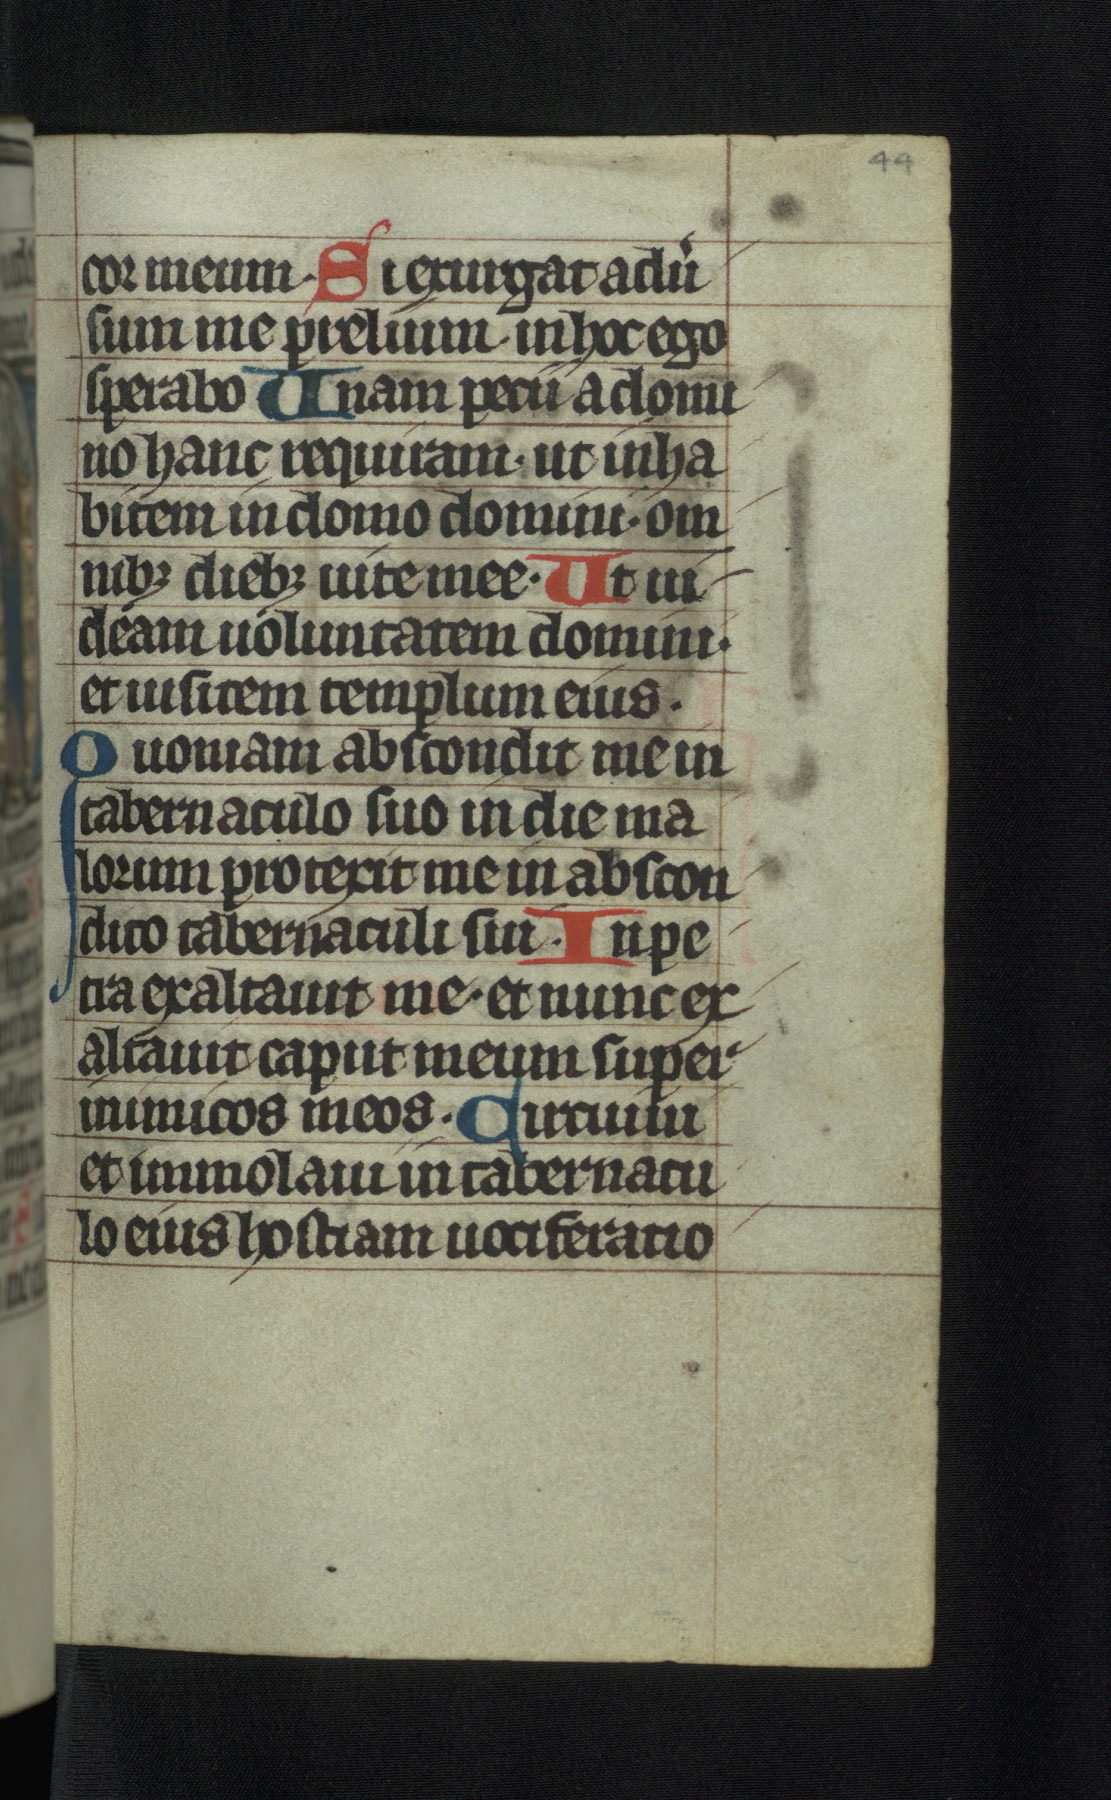 44
cor meum · Si exurgat adu᷑
sum me prelium · in hoc ego
sperabo Unam pecii a domi
no hanc requiram · ut inha
bitem in domo domini · om
nibꝫ diebꝫ uite mee · Ut ui
deam uoluntatem domini ·
et uisitem templum eius ·
Quoniam abscondit me in
tabernaculo suo in die ma
lorum protexit me in abscon
dito tabernaculi sui · In pe
tra exaltauit me · et nunc ex
altauit caput meum super
inimicos meos · Circuiui
et immolaui in tabernacu
lo eius hostiam uociferatio